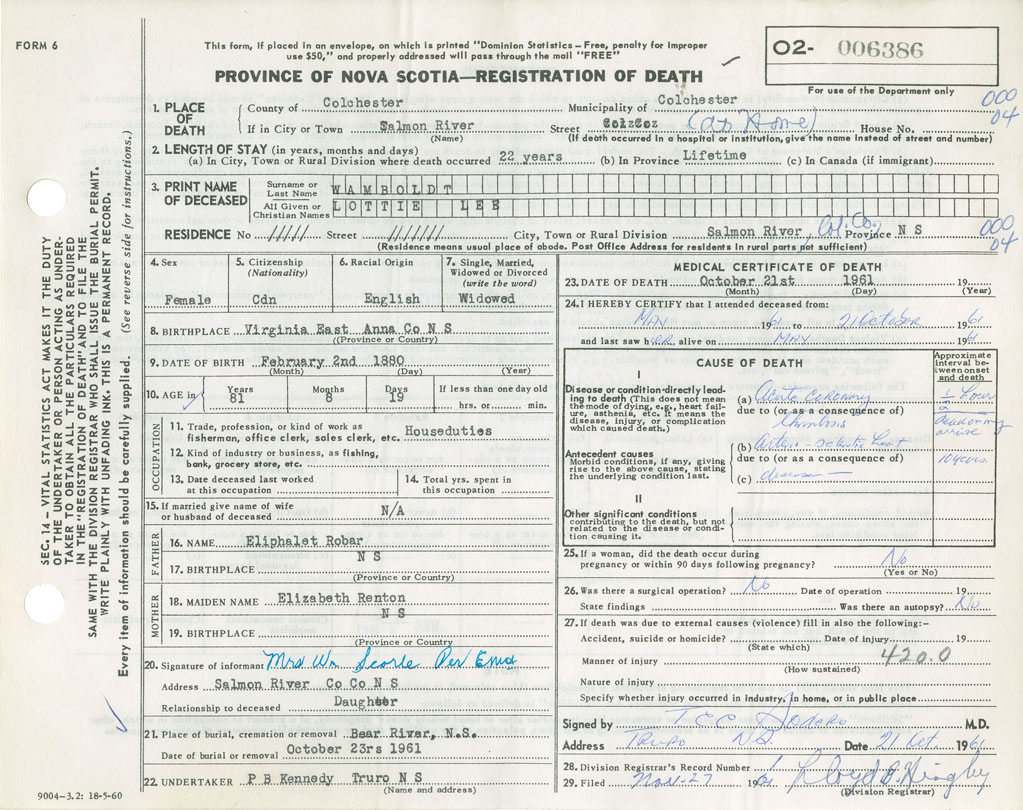 FORM 6
This form, if placed in an envelope, on which is printed "Dominion Statistics – Free, penalty for improper
use $50," and properly addressed will pass through the mail "FREE"
O2- 006386
For use of the Department only
PROVINCE OF NOVA SCOTIA—REGISTRATION OF DEATH
000
04
1. PLACE OF DEATH
County of Colchester Municipality of Colchester
If in City or Town Salmon River Street (at Home) House No.
(Name) (If death occurred in a hospital or institution, give the name instead of street and number)
2. LENGTH OF STAY (in years, months and days)
(a) In City, Town or Rural Division where death occurred 22 years (b) In Province Lifetime (c) In Canada (if immigrant)
3. PRINT NAME OF DECEASED
Surname or Last Name WAMBOLDT
All Given or Christian Names LOTTIE LEE
RESIDENCE No ///// Street ////// City, Town or Rural Division Salmon River, Col. Co. Province N S
(Residence means usual place of abode. Post Office Address for residents in rural parts not sufficient)
000
04
4. Sex
Female
5. Citizenship (Nationality)
Cdn
6. Racial Origin
English
7. Single, Married, Widowed or Divorced (write the word)
Widowed
8. BIRTHPLACE Virginia East Anna Co N S
(Province or Country)
9. DATE OF BIRTH February 2nd 1880
(Month) (Day) (Year)
10. AGE in Years Months Days If less than one day old
81 8 19 hrs. or min.
OCCUPATION
11. Trade, profession, or kind of work as
fisherman, office clerk, sales clerk, etc. Houseduties
12. Kind of industry or business, as fishing,
bank, grocery store, etc.
13. Date deceased last worked
at this occupation
14. Total yrs. spent in
this occupation
15. If married give name of wife
or husband of deceased N/A
FATHER
16. NAME Eliphalet Robar
17. BIRTHPLACE N S
(Province or Country)
MOTHER
18. MAIDEN NAME Elizabeth Renton
19. BIRTHPLACE N S
(Province or Country)
20. Signature of informant Mrs Wm Searle Per
Address Salmon River Co Co N S
Relationship to deceased Daughter
21. Place of burial, cremation or removal Bear River, N.S.
Date of burial or removal October 23rs 1961
22. UNDERTAKER P B Kennedy Truro N S
(Name and address)
9004-3.2: 18-5-60
MEDICAL CERTIFICATE OF DEATH
23. DATE OF DEATH October 21st 1961
(Month) (Day) (Year)
24. I HEREBY CERTIFY that I attended deceased from:
May 1961 to 21 October 1961
and last saw her alive on May 1961
CAUSE OF DEATH
Approximate interval between onset and death
I
Disease or condition directly leading
to death (This does not mean
the mode of dying, e.g., heart failure,
asthenia, etc. It means the
disease, injury, or complication
which caused death.)
(a) Acute Coronary
due to (or as a consequence of)
thrombosis
½ hour
dead on my
arrival
Antecedent causes
Morbid conditions, if any, giving
rise to the above cause, stating
the underlying condition last.
(b)
due to (or as a consequence of)
(c) disease
10 years.
II
Other significant conditions
contributing to the death, but not
related to the disease or condition
causing it.
25. If a woman, did the death occur during
pregnancy or within 90 days following pregnancy? No
(Yes or No)
26. Was there a surgical operation? No Date of operation 19
State findings Was there an autopsy? No
27. If death was due to external causes (violence) fill in also the following:-
Accident, suicide or homicide? Date of injury 19
(State which)
Manner of injury 420.0
(How sustained)
Nature of injury
Specify whether injury occurred in Industry, in home, or in public place
Signed by M.D.
Address Truro NS. Date 21 Oct. 1961
28. Division Registrar's Record Number
29. Filed Nov-27 1961
(Division Registrar)
SEC. 14 – VITAL STATISTICS ACT MAKES IT THE DUTY
OF THE UNDERTAKER OR PERSON ACTING AS UNDERTAKER
TO OBTAIN ALL THE PARTICULARS REQUIRED
IN THE "REGISTRATION OF DEATH" AND TO FILE THE
SAME WITH THE DIVISION REGISTRAR WHO SHALL ISSUE THE BURIAL PERMIT.
WRITE PLAINLY WITH UNFADING INK. THIS IS A PERMANENT RECORD.
Every item of information should be carefully supplied. (See reverse side for instructions.)